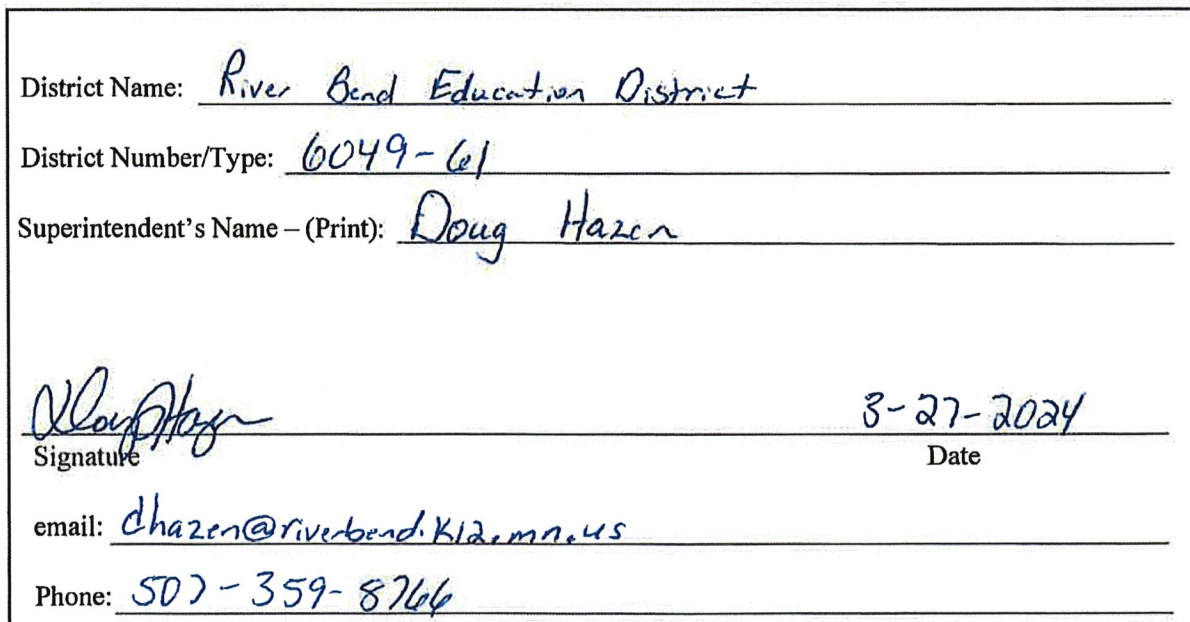 District Name: River Bend Education District
District Number/Type: 6049-61
Superintendent's Name – (Print): Doug Hazen
Doug Hazen 3-27-2024
Signature Date
email: dhazen@riverbend.k12.mn.us
Phone: 507-359-8766